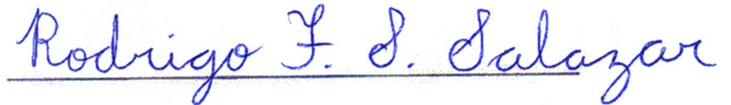 Rodrigo F. S. Salazar